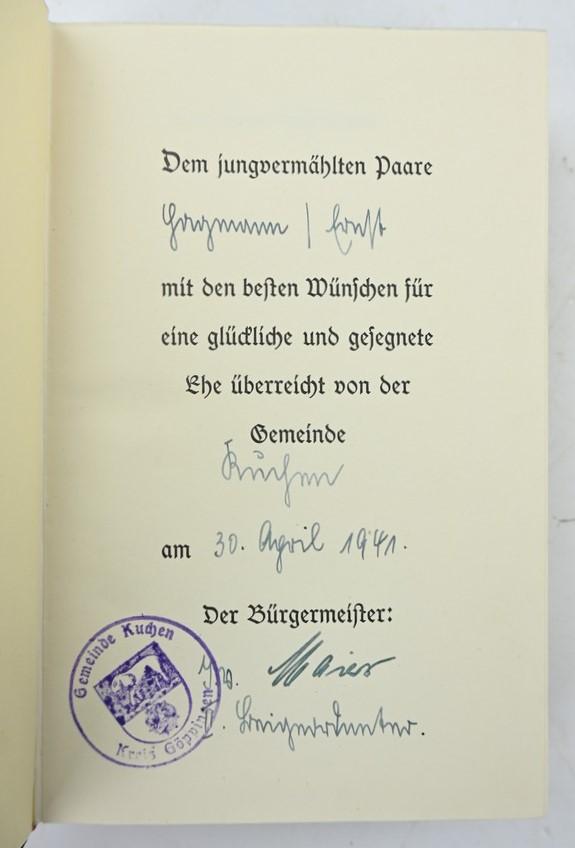 Dem jungvermählten Paare
Hagmann / Ernst
mit den besten Wünschen für
eine glückliche und gesegnete
Ehe überreicht von der
Gemeinde
Kuchen
am 30. April 1941.
Der Bürgermeister:
Maier
Gemeinde Kuchen
Kreis Göppingen